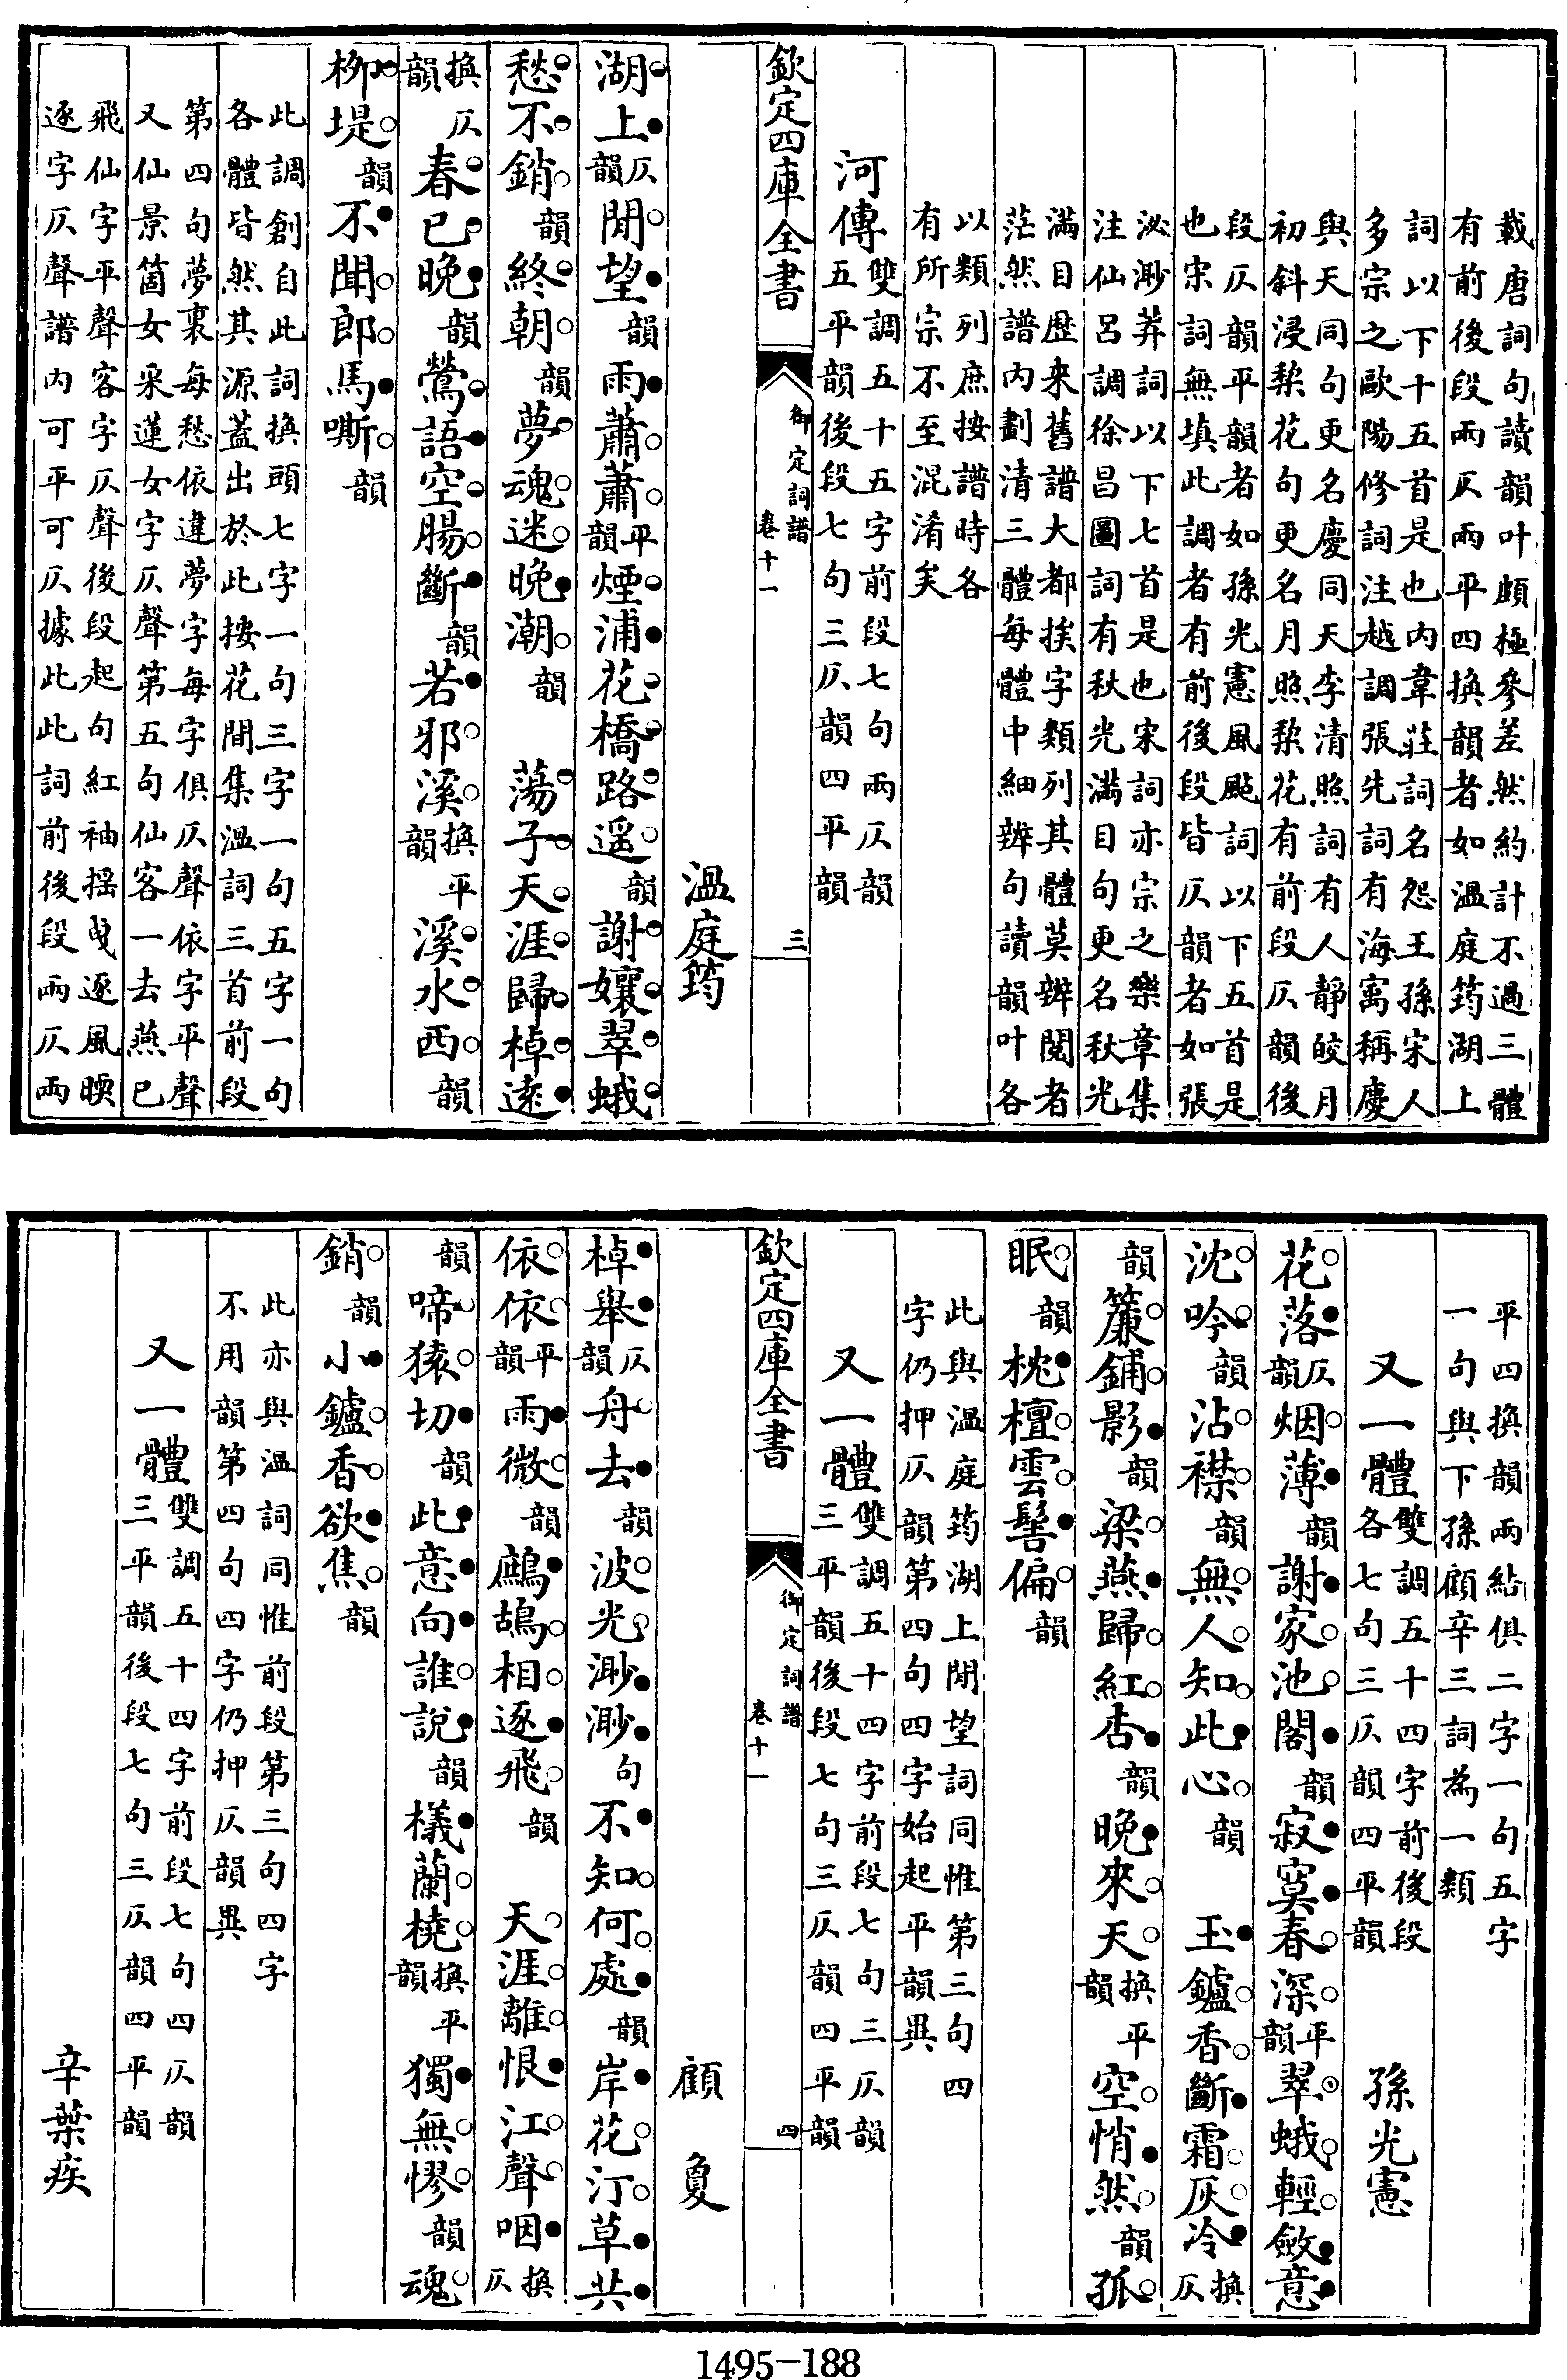 載唐詞句讀韻叶頗極參差然約計不過三體
有前後段兩仄兩平四換韻者如溫庭筠湖上
詞以下十五首是也內韋莊詞名怨王孫宋人
多宗之歐陽修詞注越調張先詞有海寓稱慶
與天同句更名慶同天李清照詞有人靜皎月
初斜浸棃花句更名月照棃花有前段仄韻後
段仄韻平韻者如孫光憲風颭詞以下五首是
也宋詞無填此調者有前後段皆仄韻者如張
泌渺莽詞以下七首是也宋詞亦宗之樂章集
注仙呂調徐昌圖詞有秋光滿目句更名秋光
滿目歷來舊譜大都挨字類列其體莫辨閱者
茫然譜內劃清三體每體中細辨句讀韻叶各
以類列庶按譜時各
有所宗不至混淆矣
河傳 雙調五十五字前段七句兩仄韻
五平韻後段七句三仄韻四平韻
欽定四庫全書 御定詞譜 卷十一 三
溫庭筠
湖●上●仄韻閒○望●韻雨●蕭○蕭○平韻煙浦●花橋路遥○韻謝孃翠蛾
愁不銷○韻終朝○韻夢魂○迷○晚●潮○韻 蕩子天涯歸棹遠●
換仄韻春已晚●韻鶯語●空腸○斷●韻若●邪○溪○換平韻溪水西○韻
柳堤○韻不●聞○郎○馬●嘶○韻
此調創自此詞換頭七字一句三字一句五字一句
各體皆然其源蓋出於此按花間集溫詞三首前段
第四句夢裏每愁依違夢字每字俱仄聲依字平聲
又仙景箇女采蓮女字仄聲第五句仙客一去燕已
飛仙字平聲客字仄聲後段起句紅袖揺曵逐風暖
逐字仄聲譜內可平可仄據此此詞前後段兩仄兩
平四換韻兩結俱二字一句五字
一句與下孫顧辛三詞為一類
又一體 雙調五十四字前後段
各七句三仄韻四平韻
孫光憲
花○落●仄韻烟○薄●韻謝●家○池○閣●韻寂●寞●春○深○平韻翠●蛾○輕○斂●意●
沈○吟○韻沾○襟○韻無○人○知○此●心○韻 玉●鑪○香○斷●霜○灰○冷●換仄
韻簾○鋪○影●韻梁○燕●歸○紅○杏●韻晚●來○天○換平韻空○悄●然○韻孤○
眠○韻枕●檀○雲○髻●偏○韻
此與溫庭筠湖上閒望詞同惟第三句四
字仍押仄韻第四句四字始起平韻異
又一體 雙調五十四字前段七句三仄韻
三平韻後段七句三仄韻四平韻
欽定四庫全書 御定詞譜 卷十一 四
顧敻
棹●舉●仄韻舟○去●韻波○光○渺●渺●句不●知○何○處●韻岸●花○汀○草●共●
依○依○平韻雨●微○韻鷓●鴣○相○逐●飛○韻 天○涯○離○恨●江○聲○咽●換仄
韻啼○猿○切●韻此●意●向●誰○說●韻檥●蘭○橈○換平韻獨●無○憀○韻魂○
銷○韻小●鑪○香○欲●焦○韻
此亦與溫詞同惟前段第三句四字
不用韻第四句四字仍押仄韻異
又一體 雙調五十四字前段七句四仄韻
三平韻後段七句三仄韻四平韻
辛棄疾
1495-188